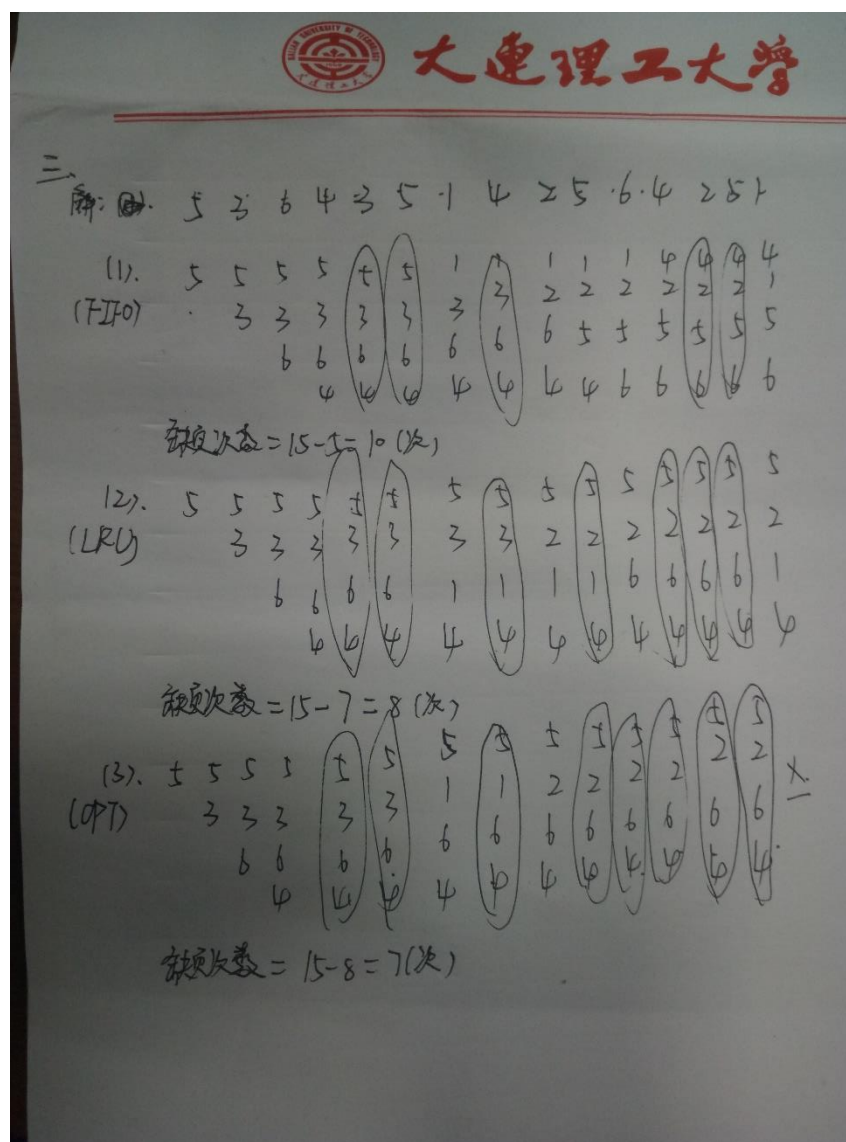 DALIAN UNIVERSITY OF TECHNOLOGY
大连理工大学
大連理工大学
三、
解: 5 3 6 4 3 5 1 4 2 5 6 4 2 5 1
(1). 5 5 5 5 5 5 1 1 1 1 1 4 4 4 4
(FIFO) 3 3 3 3 3 3 3 2 2 2 2 2 2 1
6 6 6 6 6 6 6 5 5 5 5 5 5
4 4 4 4 4 4 4 6 6 6 6 6
缺页次数=15-5=10(次)
(2). 5 5 5 5 5 5 5 5 5 5 5 5 5 5 5
(LRU) 3 3 3 3 3 3 3 2 2 2 2 2 2 2
6 6 6 6 1 1 1 1 6 6 6 6 1
4 4 4 4 4 4 4 4 4 4 4 4
缺页次数=15-7=8(次)
(3). 5 5 5 5 5 5 5 5 5 5 5 5 5 5
(OPT) 3 3 3 3 3 1 1 2 2 2 2 2 2
6 6 6 6 6 6 6 6 6 6 6 6
4 4 4 4 4 4 4 4 4 4 4
缺页次数=15-8=7(次)